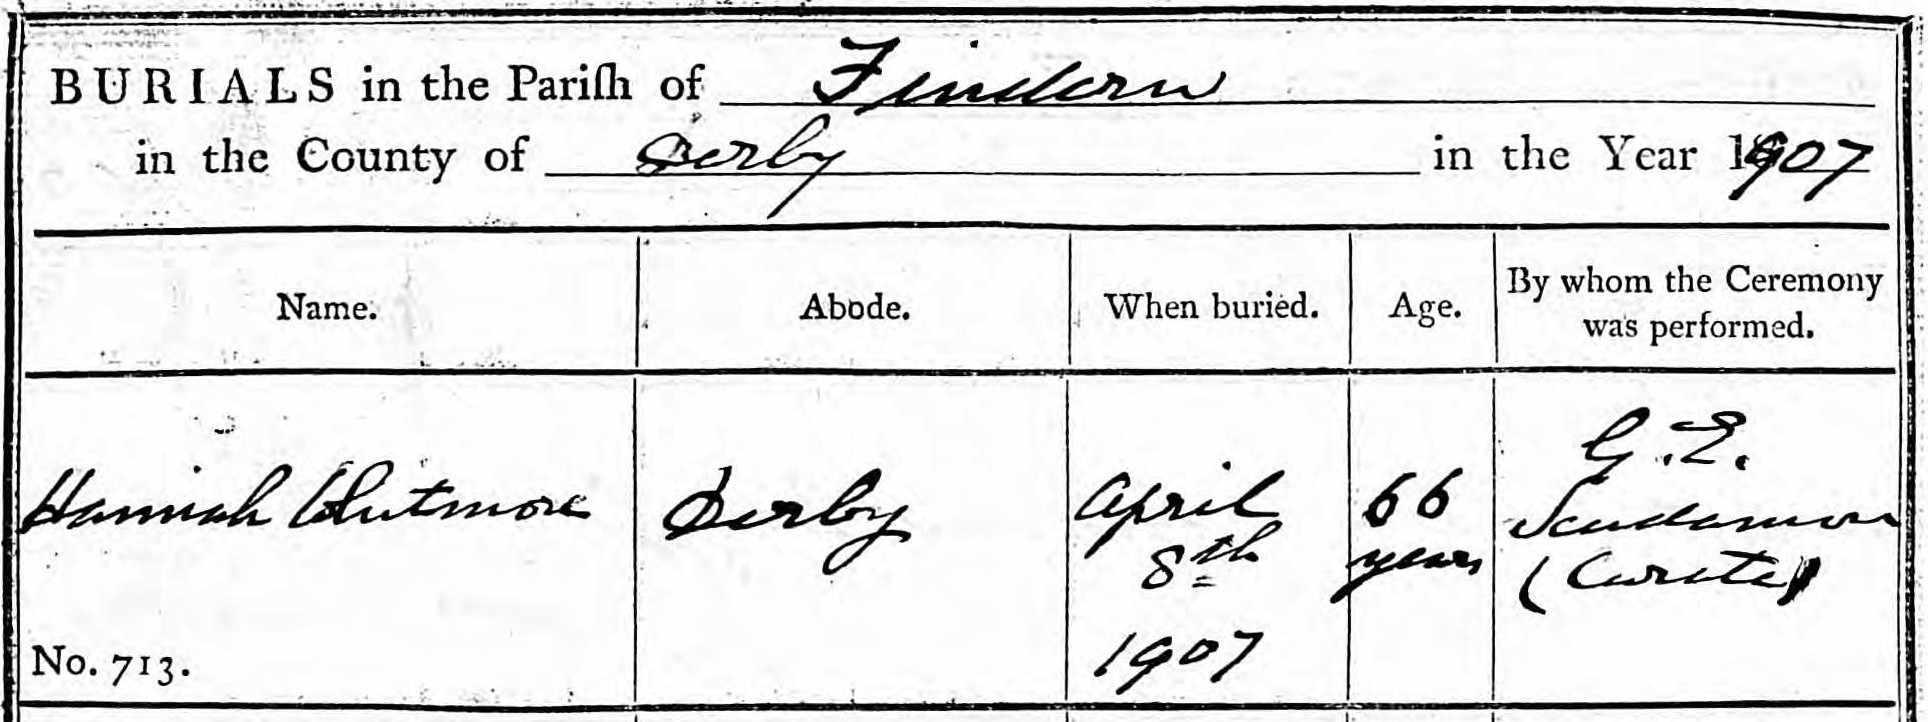 BURIALS in the Pariſh of Findern
in the County of Derby in the Year 1907
Name. Abode. When buried. Age. By whom the Ceremony
was performed.
Hannah Whitmore Derby April 8th 1907 66 years G. E. Scudamore (Curate)
No. 713.